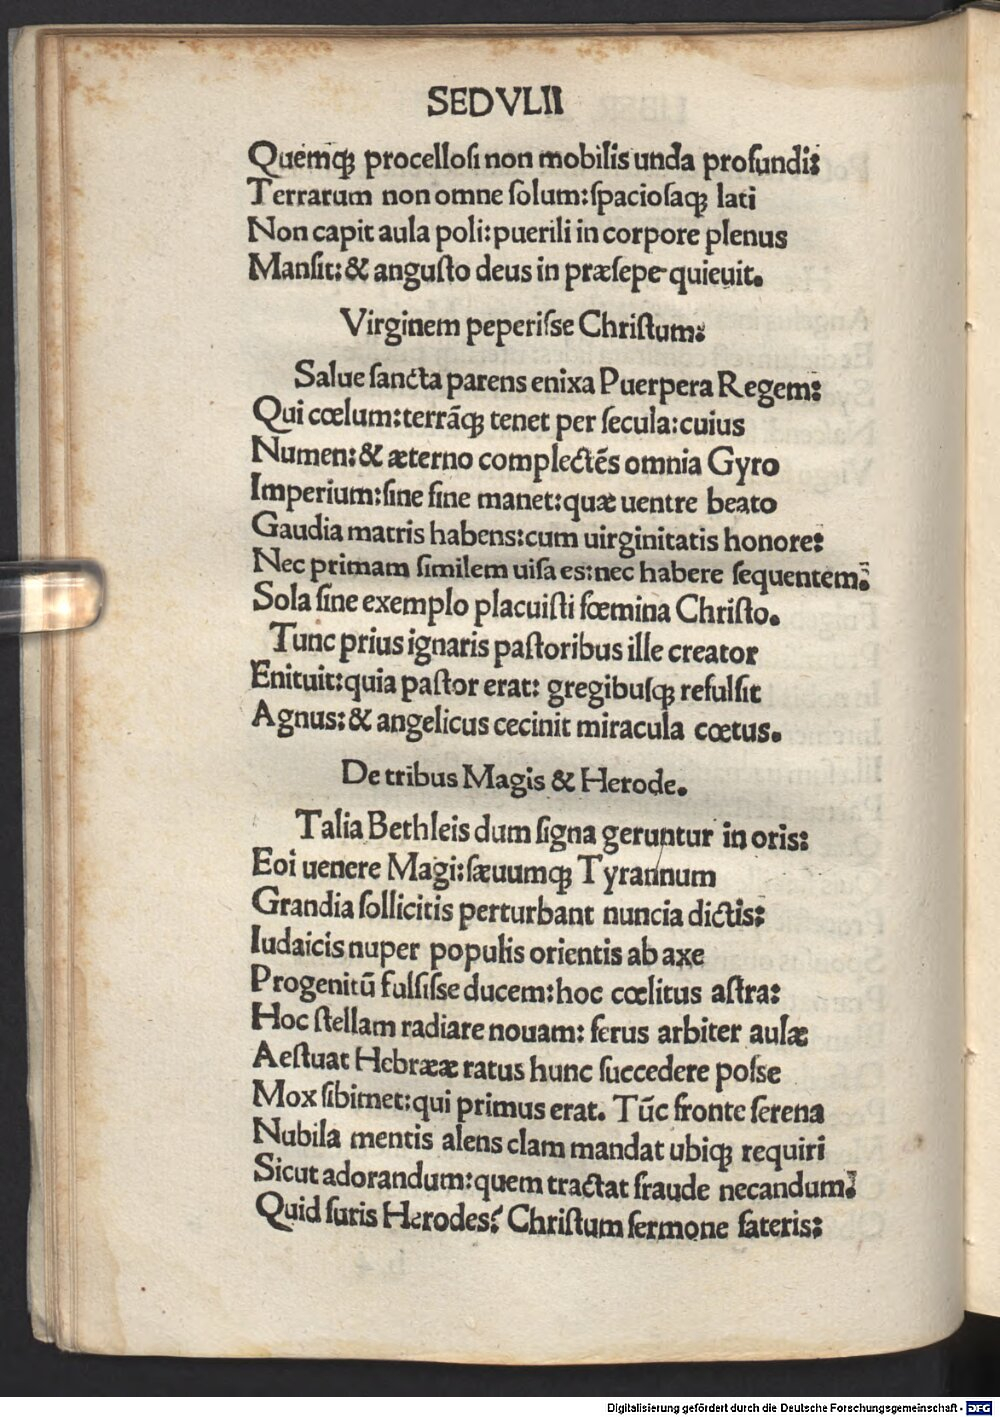 SEDVLII
Quemqꝫ procelloſi non mobilis unda profundi:
Terrarum non omne ſolum:ſpacioſaqꝫ lati
Non capit aula poli:puerili in corpore plenus
Manſit:& anguſto deus in præſepe quieuit.
Virginem peperiſſe Chriſtum:
Salue ſancta parens enixa Puerpera Regem:
Qui cœlum:terrāqꝫ tenet per ſecula:cuius
Numen:& æterno complectēs omnia Gyro
Imperium:ſine fine manet:quæ uentre beato
Gaudia matris habens:cum uirginitatis honore:
Nec primam ſimilem uiſa es:nec habere ſequentem:
Sola ſine exemplo placuiſti fœmina Chriſto.
Tunc prius ignaris paſtoribus ille creator
Enituit:quia paſtor erat: gregibuſqꝫ refulſit
Agnus:& angelicus cecinit miracula cœtus.
De tribus Magis & Herode.
Talia Bethleis dum ſigna geruntur in oris:
Eoi uenere Magi:ſæuumqꝫ Tyrannum
Grandia ſollicitis perturbant nuncia dictis:
Iudaicis nuper populis orientis ab axe
Progenitū fulſiſſe ducem:hoc cœlitus aſtra:
Hoc ſtellam radiare nouam: ferus arbiter aulæ
Aeſtuat Hebrææ ratus hunc ſuccedere poſſe
Mox ſibimet:qui primus erat. Tūc fronte ſerena
Nubila mentis alens clam mandat ubiqꝫ requiri
Sicut adorandum:quem tractat fraude necandum.
Quid furis Herodes? Chriſtum ſermone fateris:
Digitalisierung gefördert durch die Deutsche Forschungsgemeinschaft - DFG